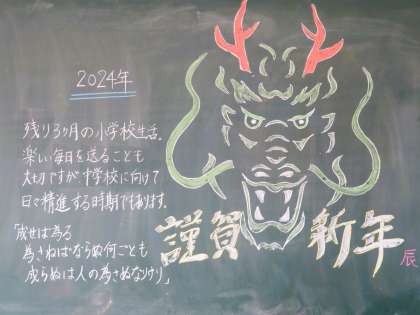 2024年
残り3ヶ月の小学校生活。
楽しい毎日を送ることも
大切ですが、中学校に向けて
日々精進する時期でもあります。
「成せば為る
為さねばならぬ何ごとも
成らぬは人の為さぬなりけり」
謹賀新年
辰